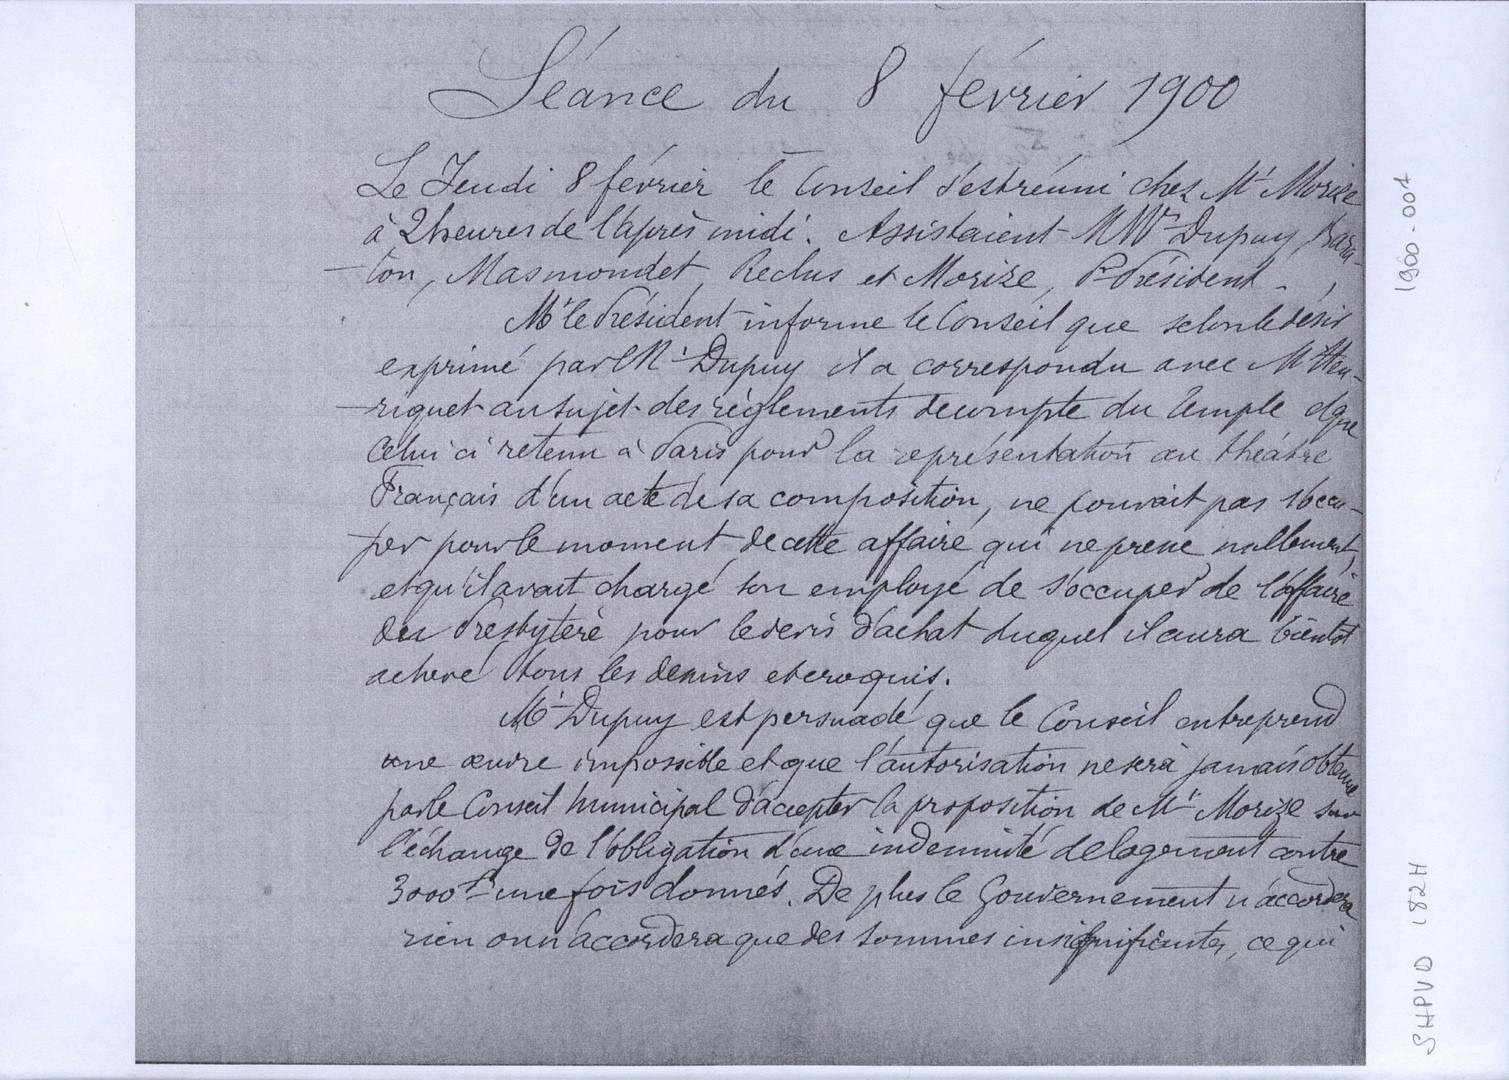 Séance du 8 février 1900
Le Jeudi 8 février le Conseil s'est réuni chez Mr Morize
à 2 heures de l'après midi. Assistaient MMrs Dupuy, Bara-
ton, Masmondet, Reclus et Morize, Pr Président.
Mr le Président informe le Conseil que selon le désir
exprimé par Mr Dupuy il a correspondu avec Mr Hen-
riquet au sujet des règlements de compte du Temple et que
celui ci retenu à Paris pour la représentation au théâtre
Français d'un acte de sa composition, ne pouvait pas s'occu-
per pour le moment de cette affaire qui ne presse nullement,
et qu'il avait chargé son employé de s'occuper de l'affaire
du Presbytère pour le devis d'achat duquel il aura bientôt
achevé tous les dessins et croquis.
Mr Dupuy est persuadé que le Conseil entreprend
une œuvre impossible et que l'autorisation ne sera jamais obtenue
par le Conseil municipal d'accepter la proposition de Mr Morize sur
l'échange de l'obligation d'une indemnité de logement contre
3000f une fois donnés. De plus le Gouvernement n'accordera
rien ou n'accordera que des sommes insignifiantes, ce qui
1900-001
SHPVD 182H